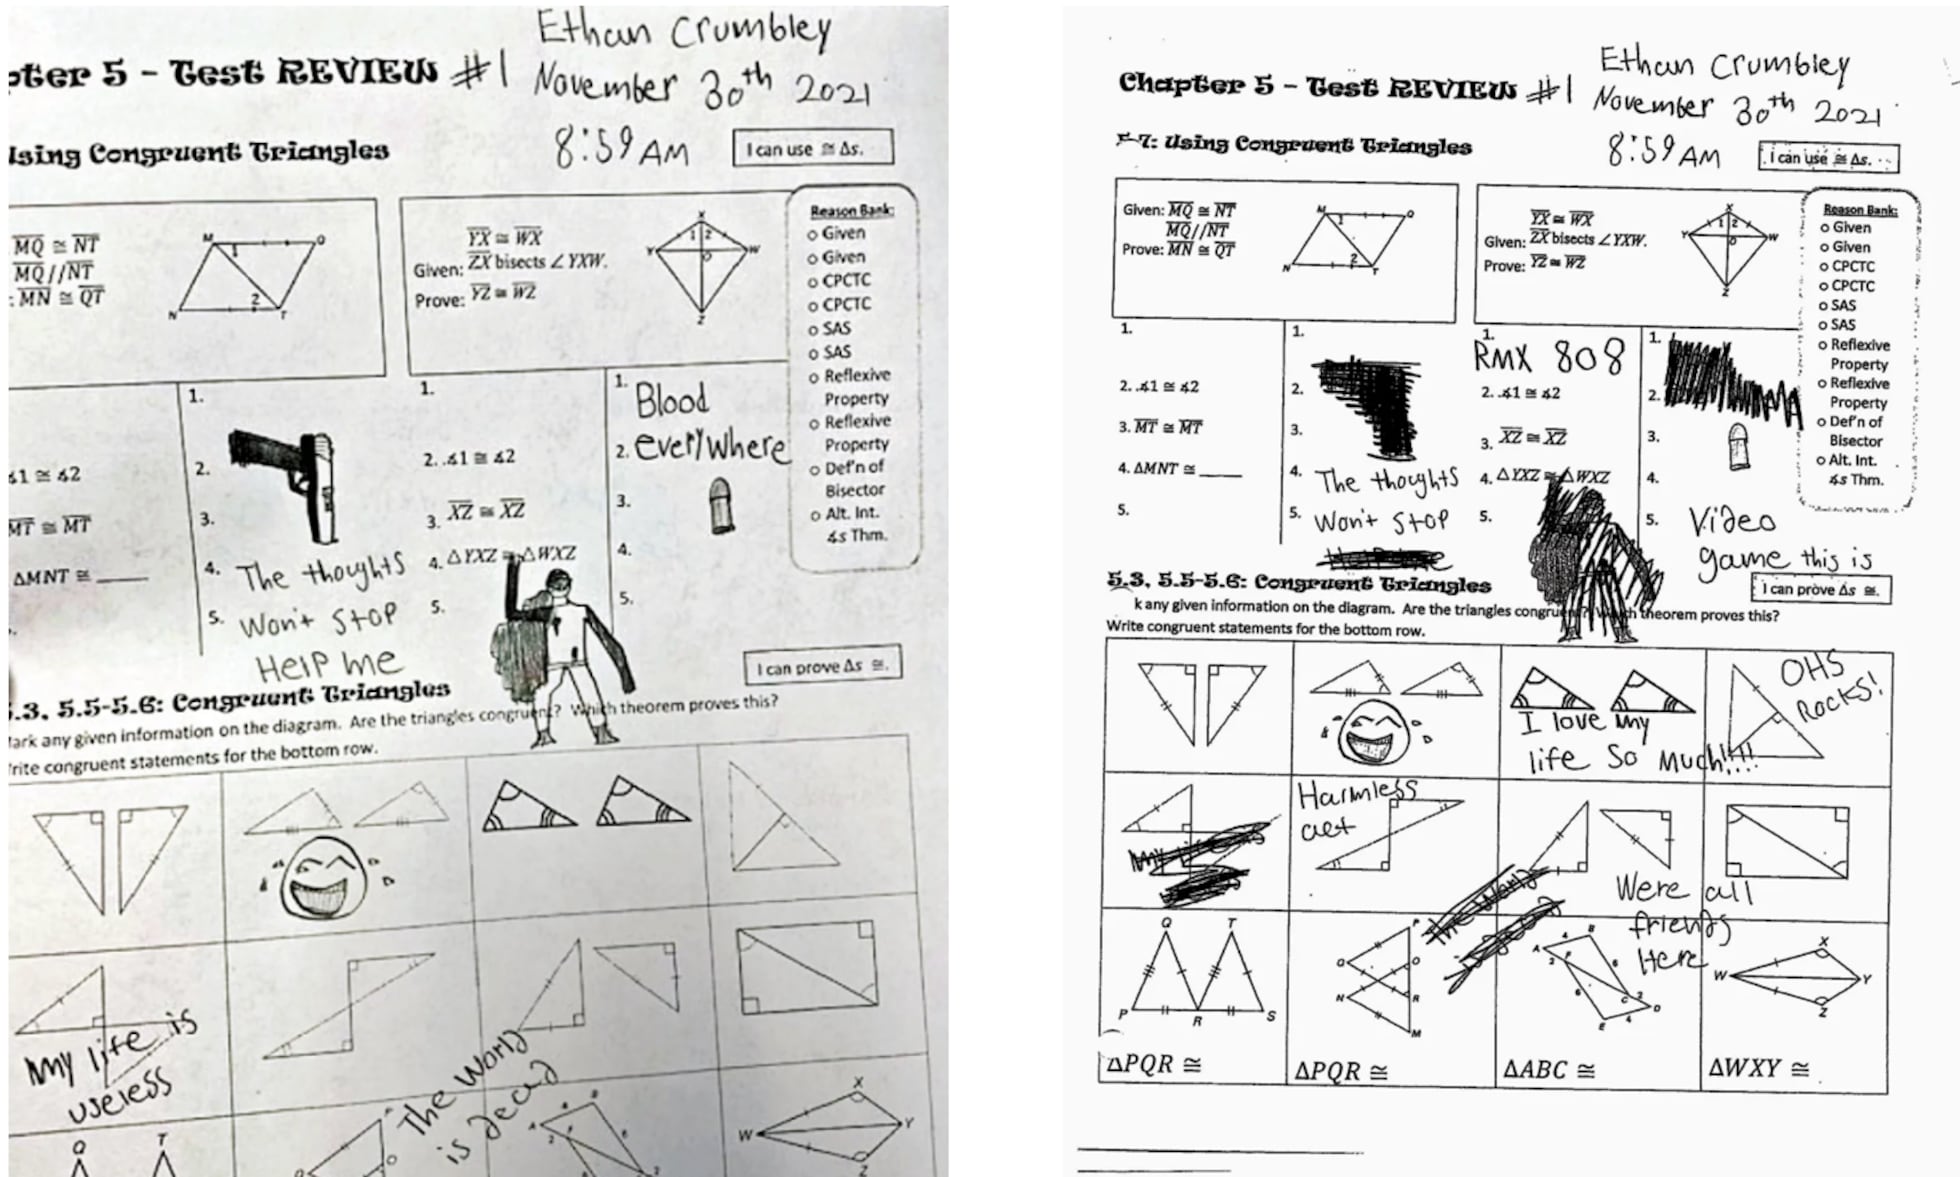 Ethan Crumbley
pter 5 - Test REVIEW #1
November 30th 2021
8:59 AM
I can use ≅ Δs.
Using Congruent Triangles
MQ ≅ NT
MQ//NT
: MN ≅ QT
M
Q
1
2
N
T
YX ≅ WX
Given: ZX bisects ∠YXW.
Prove: YZ ≅ WZ
X
1 2
Y
W
O
Z
Reason Bank:
o Given
o Given
o CPCTC
o CPCTC
o SAS
o SAS
o Reflexive
Property
o Reflexive
Property
o Def'n of
Bisector
o Alt. Int.
∡s Thm.
∡1 ≅ ∡2
MT ≅ MT
ΔMNT ≅ ____
1.
2.
3.
4. The thoughts
5. Won't Stop
Help me
1.
2. .∡1 ≅ ∡2
3. XZ ≅ XZ
4. ΔYXZ ≅ ΔWXZ
5.
1. Blood
2. everywhere
3.
4.
5.
I can prove Δs ≅.
.3, 5.5-5.6: Congruent Triangles
ark any given information on the diagram. Are the triangles congruent? Which theorem proves this?
rite congruent statements for the bottom row.
My life is
useless
The World
is dead
Q
T
A
B
4
2
F
6
W
X
Y
Z
Ethan Crumbley
Chapter 5 - Test REVIEW #1
November 30th 2021
8:59 AM
I can use ≅ Δs.
7: Using Congruent Triangles
Given: MQ ≅ NT
MQ//NT
Prove: MN ≅ QT
M
Q
1
2
N
T
YX ≅ WX
Given: ZX bisects ∠YXW.
Prove: YZ ≅ WZ
X
1 2
Y
W
O
Z
Reason Bank:
o Given
o Given
o CPCTC
o CPCTC
o SAS
o SAS
o Reflexive
Property
o Reflexive
Property
o Def'n of
Bisector
o Alt. Int.
∡s Thm.
1.
2. .∡1 ≅ ∡2
3. MT ≅ MT
4. ΔMNT ≅ ____
5.
1.
2.
3.
4. The thoughts
5. Won't Stop
1.
RMX 808
2. .∡1 ≅ ∡2
3. XZ ≅ XZ
4. ΔYXZ ≅ ΔWXZ
5.
1.
2.
3.
4.
5. Video
game this is
I can prove Δs ≅.
5.3, 5.5-5.6: Congruent Triangles
k any given information on the diagram. Are the triangles congruent? Which theorem proves this?
Write congruent statements for the bottom row.
OHS
Rocks!
I love my
life So Much!!!!
Harmless
act
Were all
friends
Here
Q
T
P
R
S
P
Q
O
N
R
M
A
4
B
2
F
6
6
C
2
D
E
4
W
X
Y
Z
ΔPQR ≅
ΔPQR ≅
ΔABC ≅
ΔWXY ≅